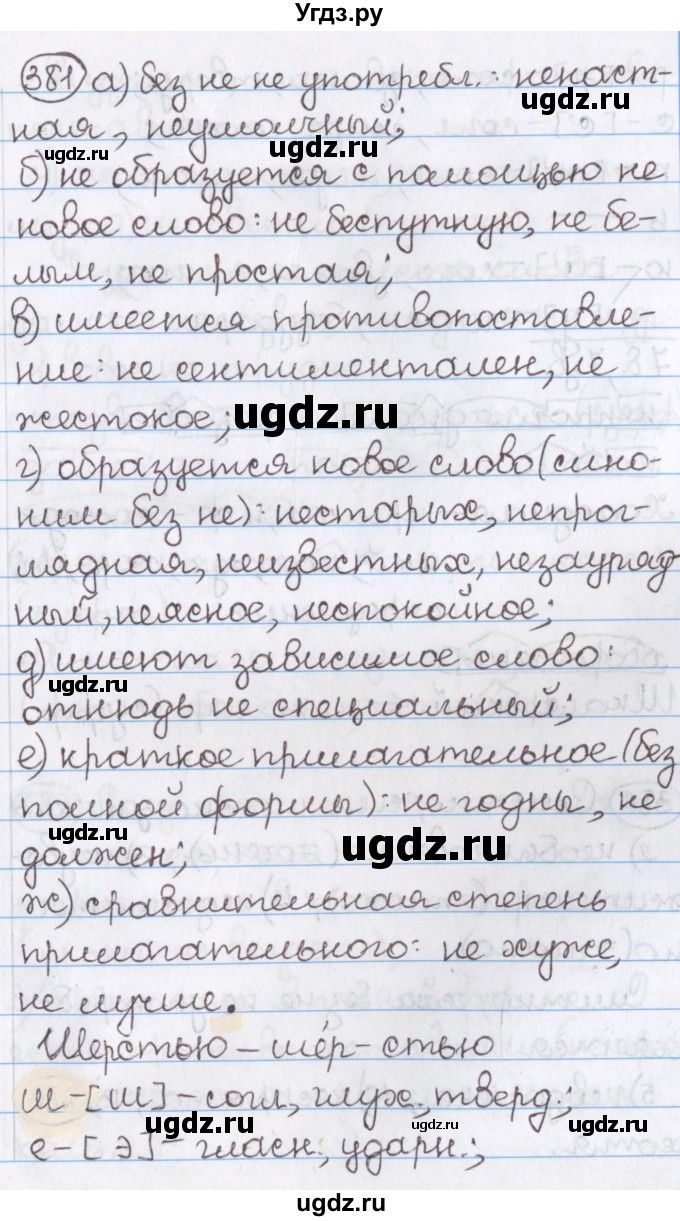 Угдз.ру
381 а) без не не употребл.: ненаст-
ugdz.ru
ная, неумолчный;
ugdz.ru
ugdz.ru
б) не образуется с помощью не
новое слово: не беспутную, не бе-
лым, не простая;
в) имеется противопоставле-
ние: не сентиментален, не
жестокое;
ugdz.ru
г) образуется новое слово (сино-
ним без не): нестарых, непрог-
лядная, неизвестных, незауряд
ный, неясное, неспокойное;
д) имеют зависимое слово:
ugdz.ru
отнюдь не специальный;
е) краткое прилагательное (без
полной формы): не годны, не
ugdz.ru
должен;
ugdz.ru
ж) сравнительная степень
прилагательного: не хуже,
не лучше.
Шерстью – ше́р-стью
ш-[ш]-согл., глух., тверд.;
ugdz.ru
ugdz.ru
е-[э]-гласн., ударн.;
ugdz.ru